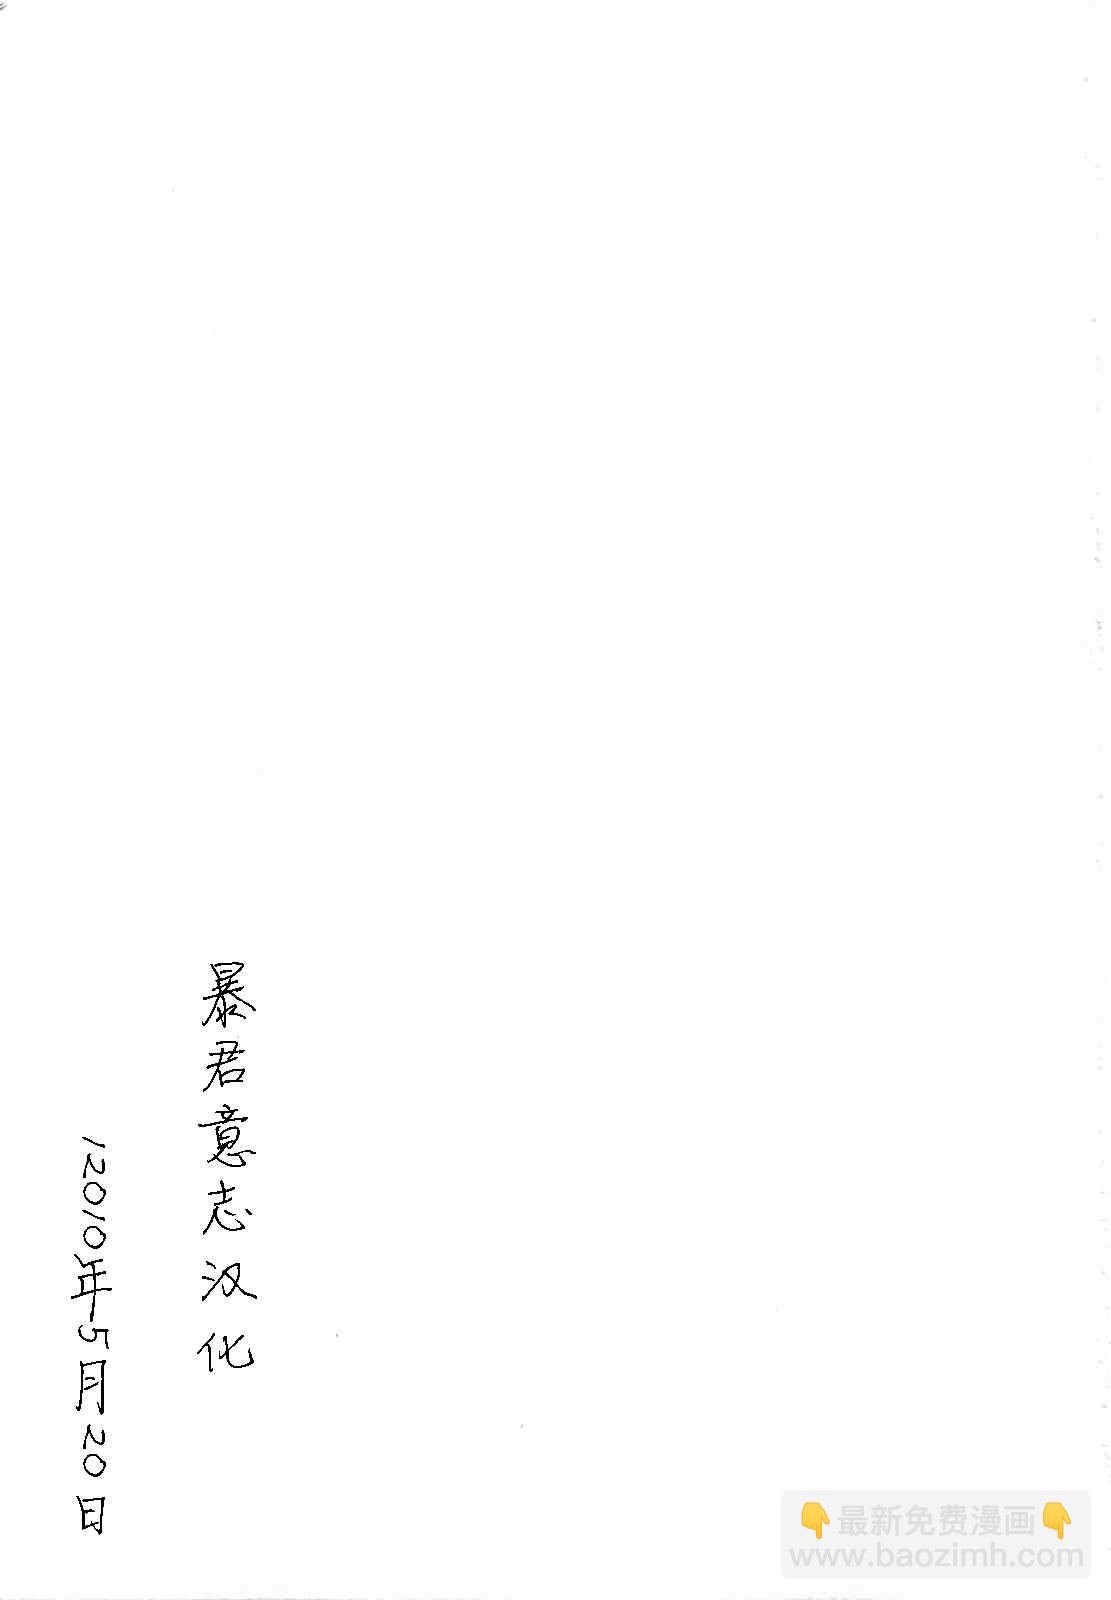 暴君意志汉化
12010年5月20日
👇最新免费漫画👇
www.baozimh.com